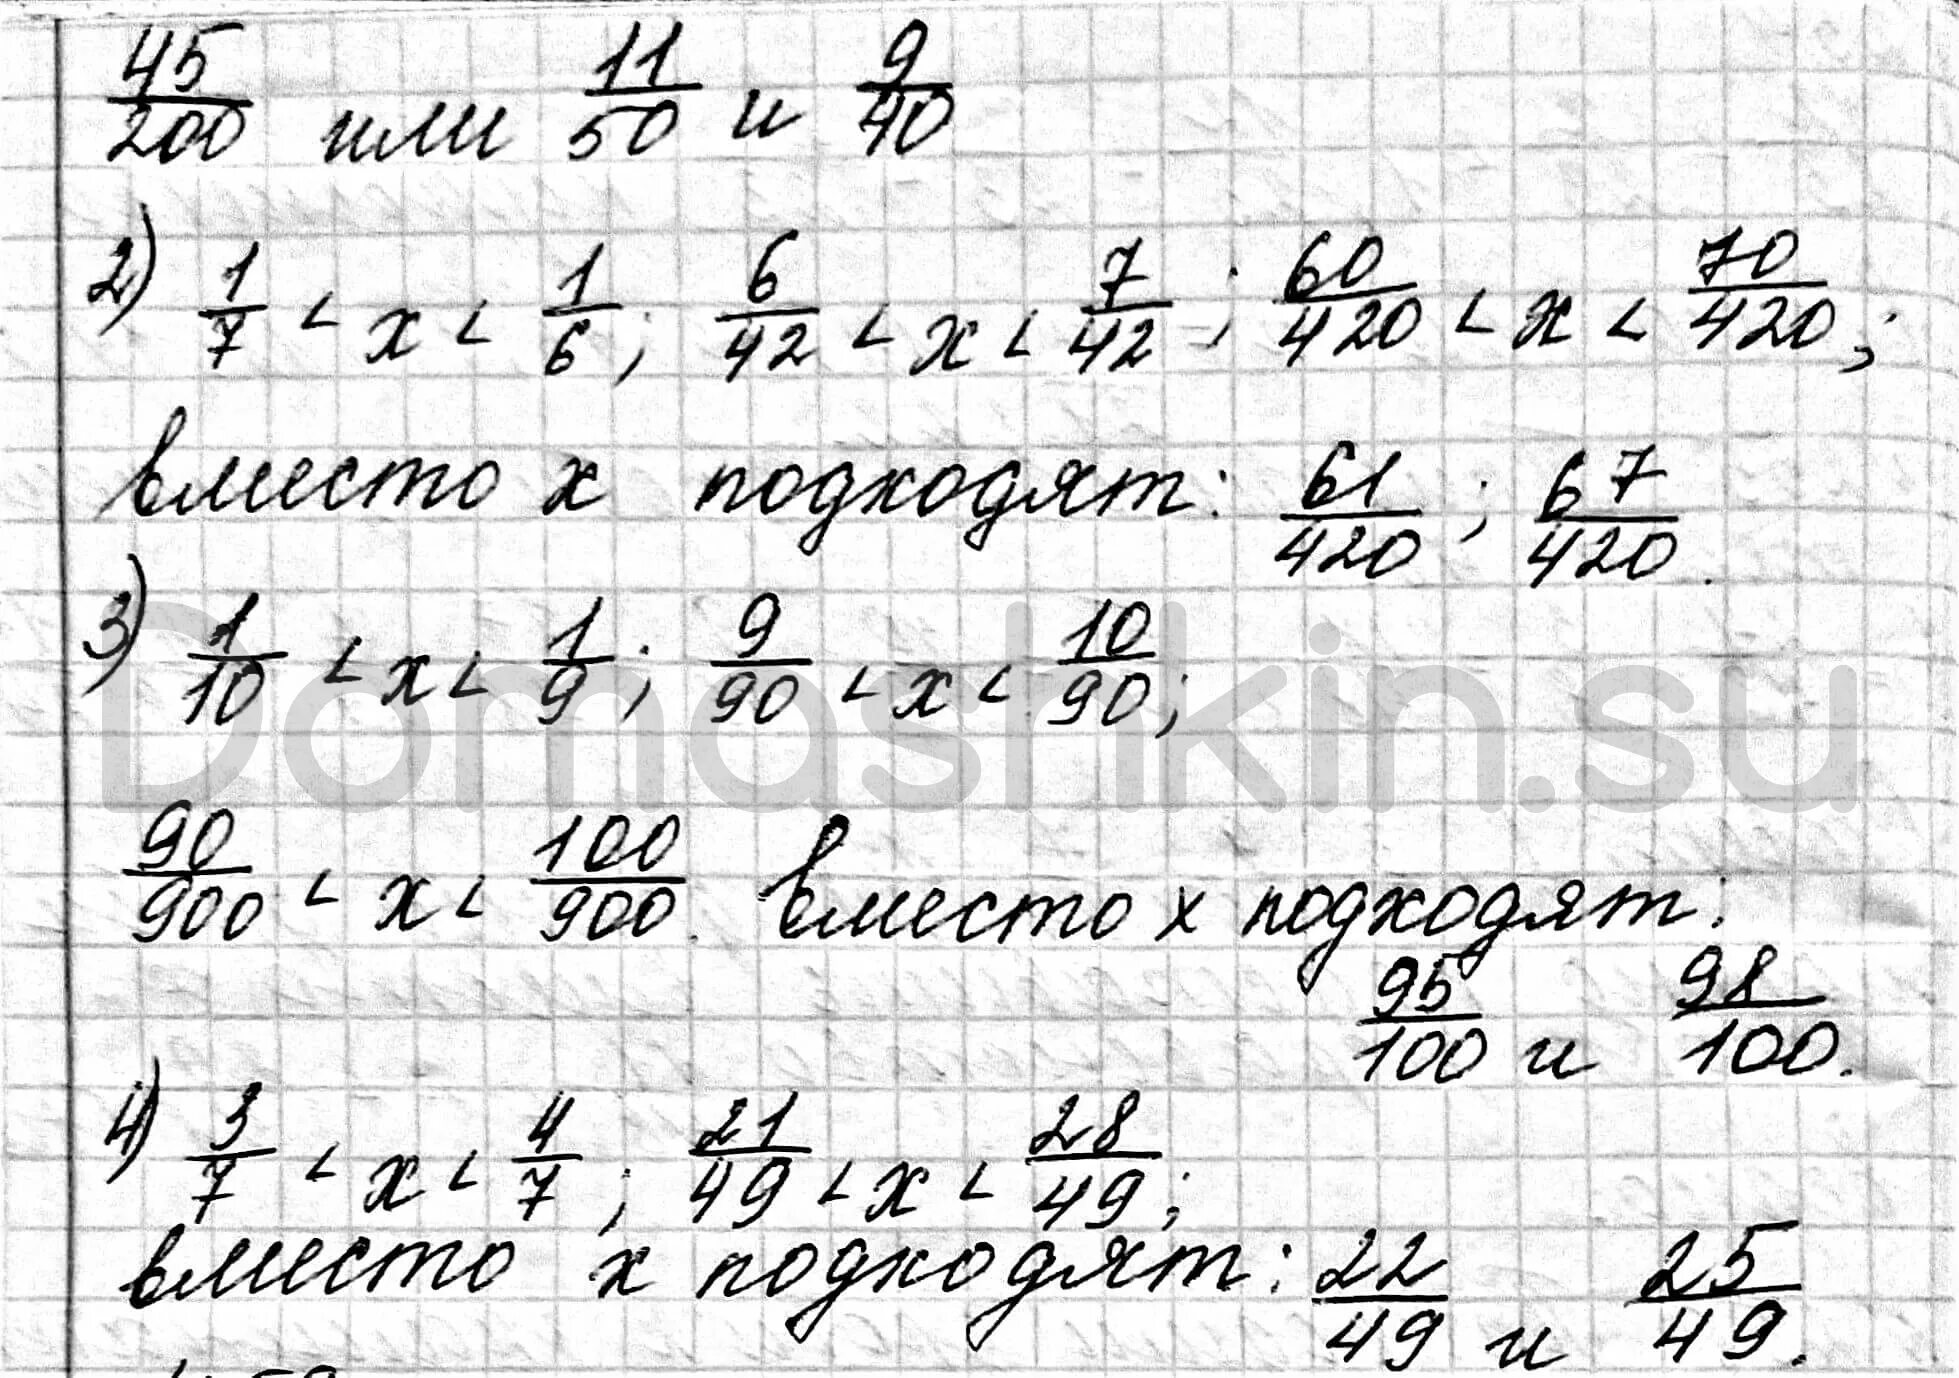 45/200 или 11/50 и 9/40
2) 1/7 < x < 1/6; 6/42 < x < 7/42; 60/420 < x < 70/420;
вместо x подходят: 61/420; 67/420.
3) 1/10 < x < 1/9; 9/90 < x < 10/90;
Domashkin.su
90/900 < x < 100/900. вместо x подходят:
95/100 и 98/100.
4) 3/7 < x < 4/7; 21/49 < x < 28/49;
вместо x подходят: 22/49 и 25/49.